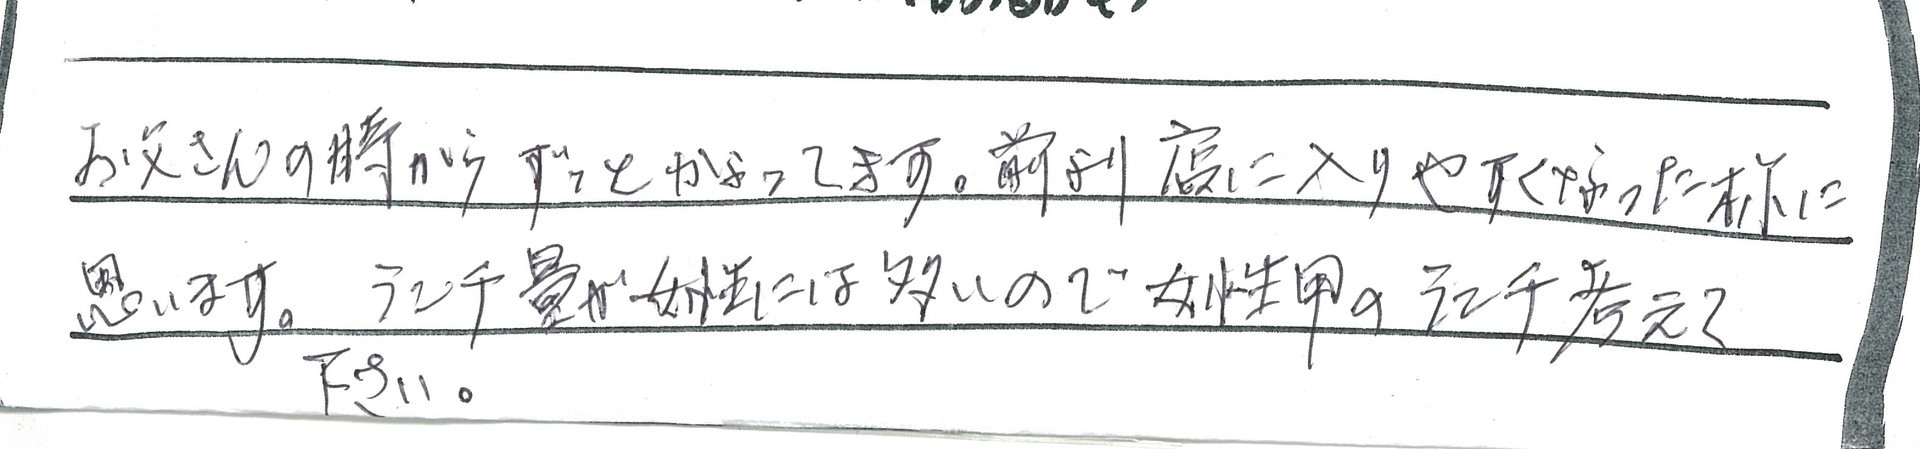 お父さんの時からずっとかよってます。前より店に入りやすくなった様に
思います。 ランチ量が女性には多いので女性用のランチ考えて
下さい。